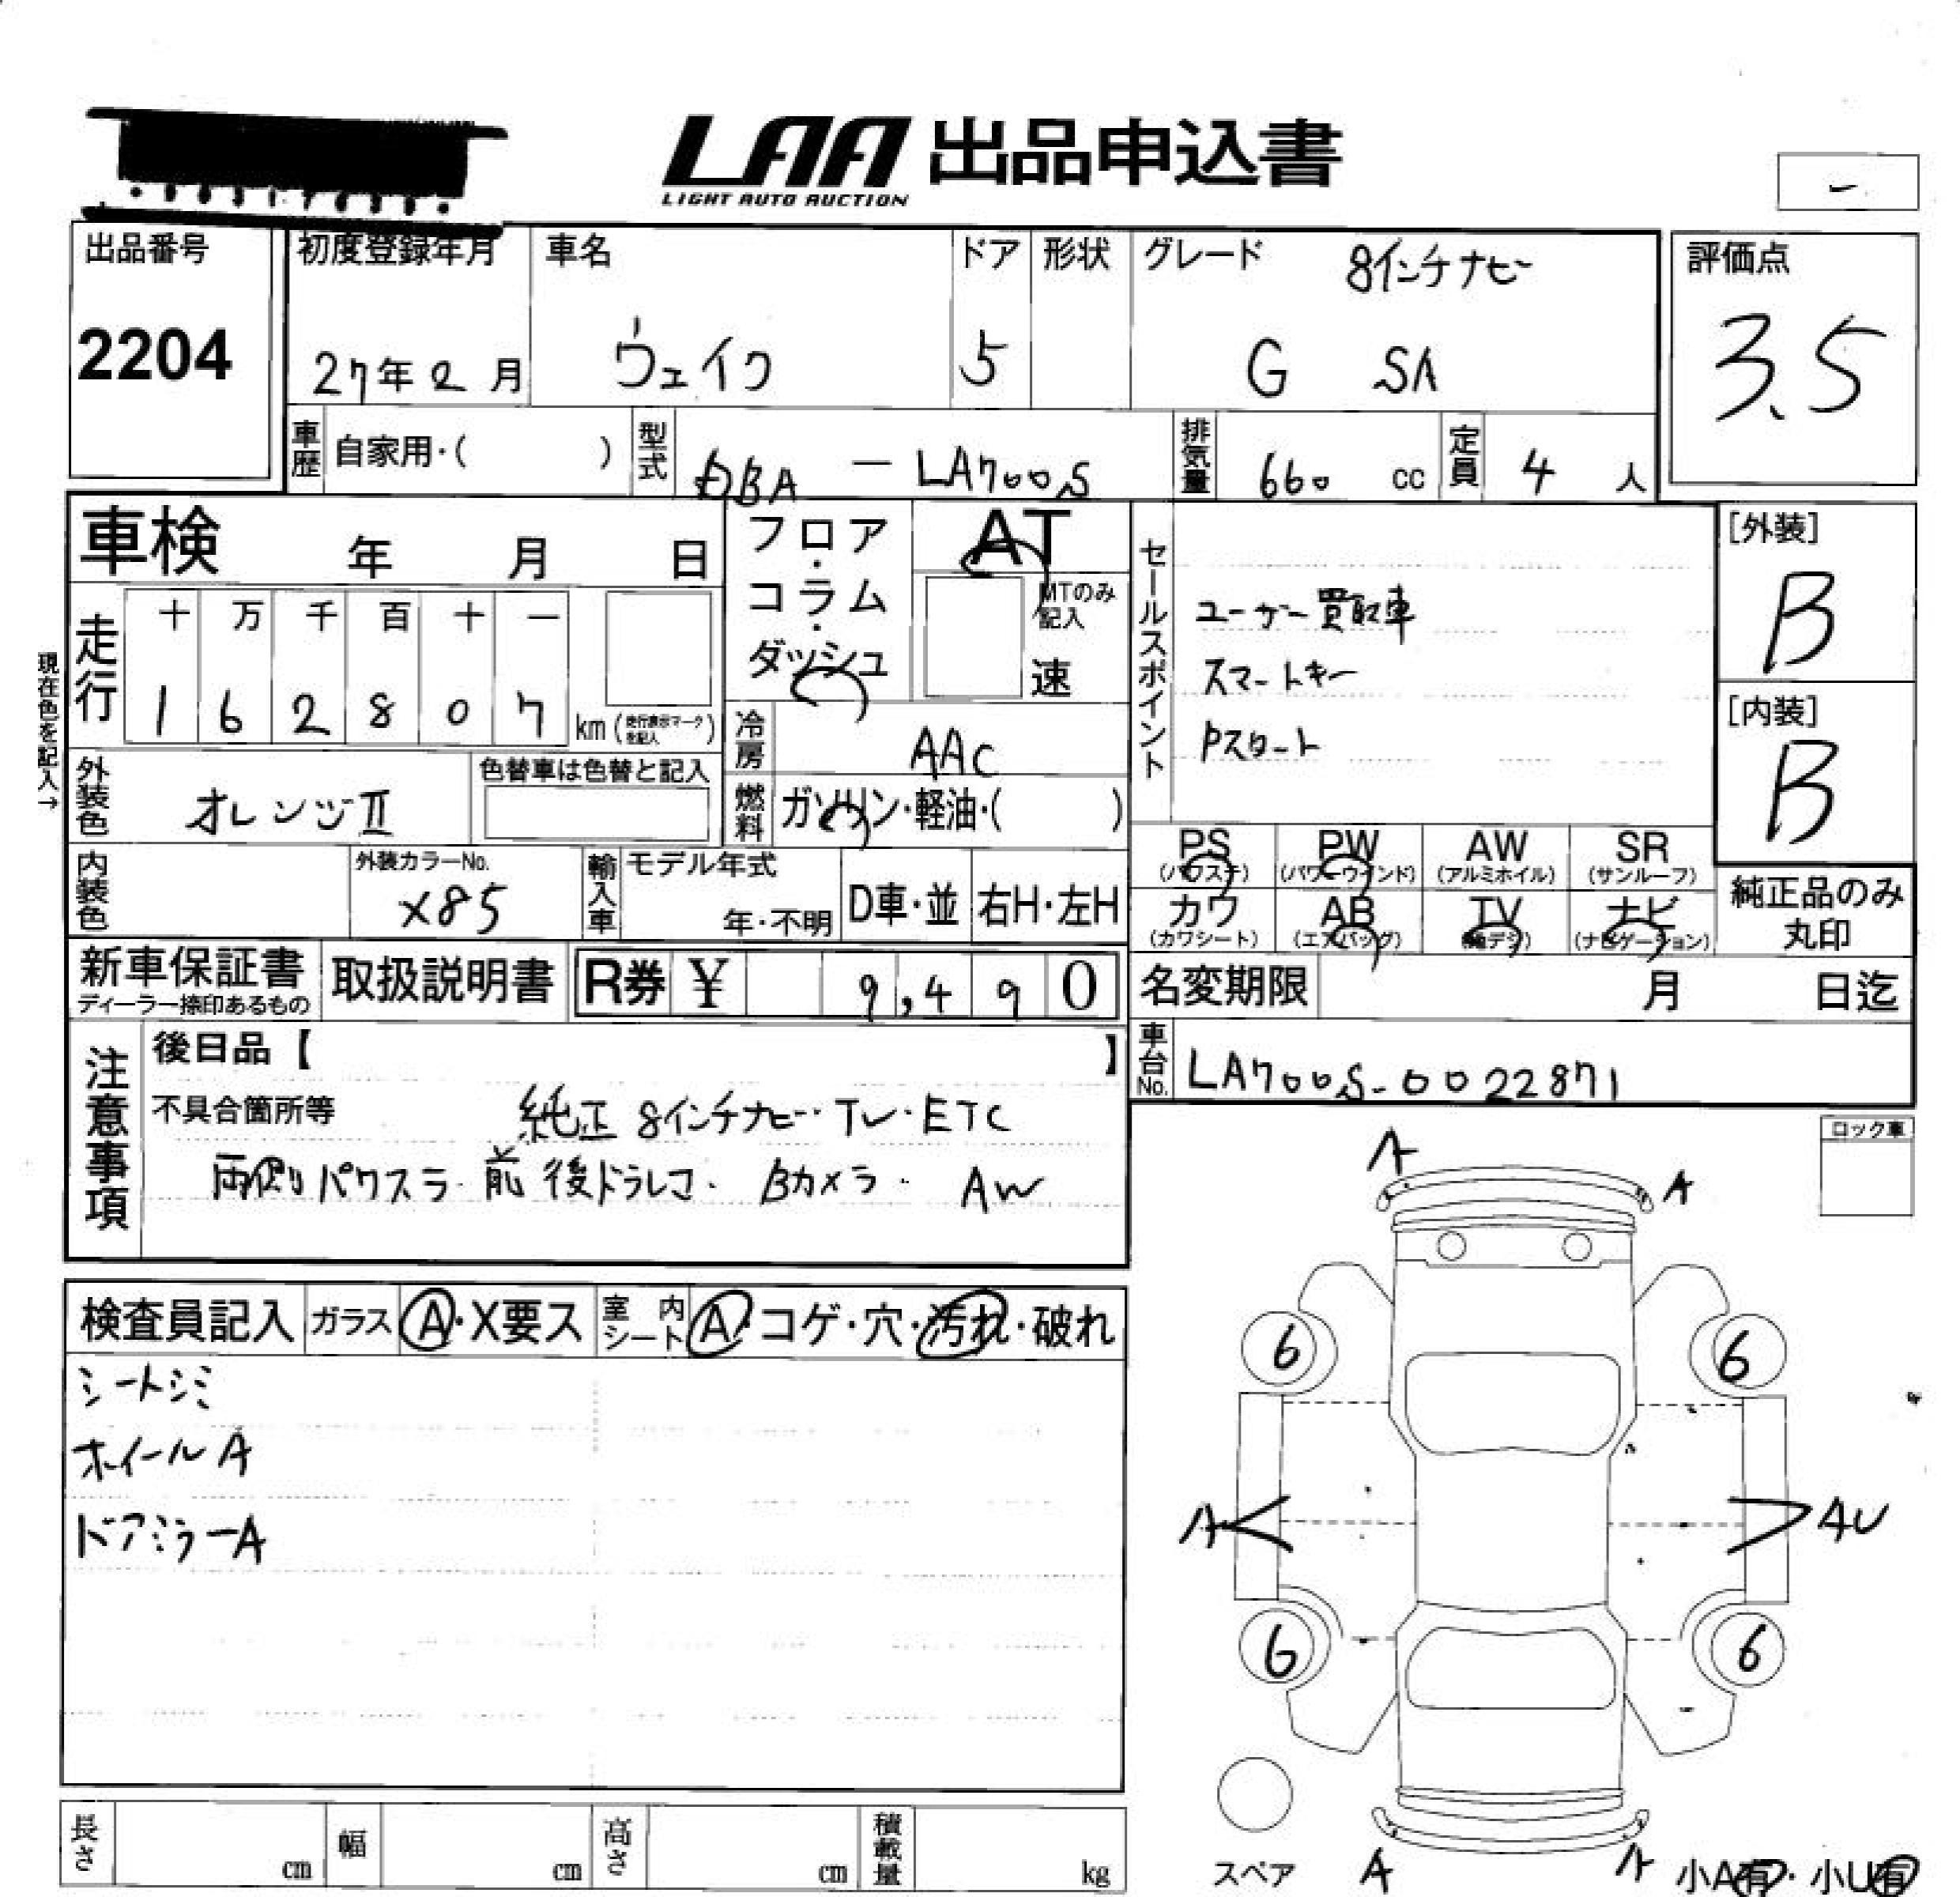 LAA 出品申込書
LIGHT AUTO AUCTION
出品番号 初度登録年月 車名 ドア 形状 グレード 8インチナビ 評価点
2204 27年2月 ウェイク 5 G SA 3.5
車歴 自家用・( ) 型式 DBA - LA700S 排気量 660 cc 定員 4 人
車検 年 月 日 フロア・コラム・ダッシュ AT
MTのみ記入
速
走行 十 万 千 百 十 一
1 6 2 8 0 7 km (走行表示マークを記入)
現在色を記入→
冷房 AAC
外装色 オレンジⅡ 色替車は色替と記入
燃料 ガソリン・軽油・( )
内装色 外装カラーNo. X85
輸入車 モデル年式 年・不明 D車・並 右H・左H
セールスポイント
ユーザー買取車
スマートキー
Pスタート
[外装] B
[内装] B
PS (パワステ) PW (パワーウインド) AW (アルミホイル) SR (サンルーフ)
カワ (カワシート) AB (エアバッグ) TV (地デジ) ナビ (ナビゲーション)
純正品のみ丸印
新車保証書 ディーラー捺印あるもの 取扱説明書 R券 ¥ 9,490
名変期限 月 日迄
車台No. LA700S-0022871
注意事項
後日品【 】
不具合箇所等 純正 8インチナビ・TV・ETC
両側パワスラ・前後ドラレコ・Bカメラ・AW
ロック車
検査員記入 ガラス A・X要ス 室内シート A・コゲ・穴・汚れ・破れ
シートシミ
ホイールA
ドアミラーA
A A
6 6
A AU
6 6
スペア A A 小A有・小U有
長さ cm 幅 cm 高さ cm 積載量 kg